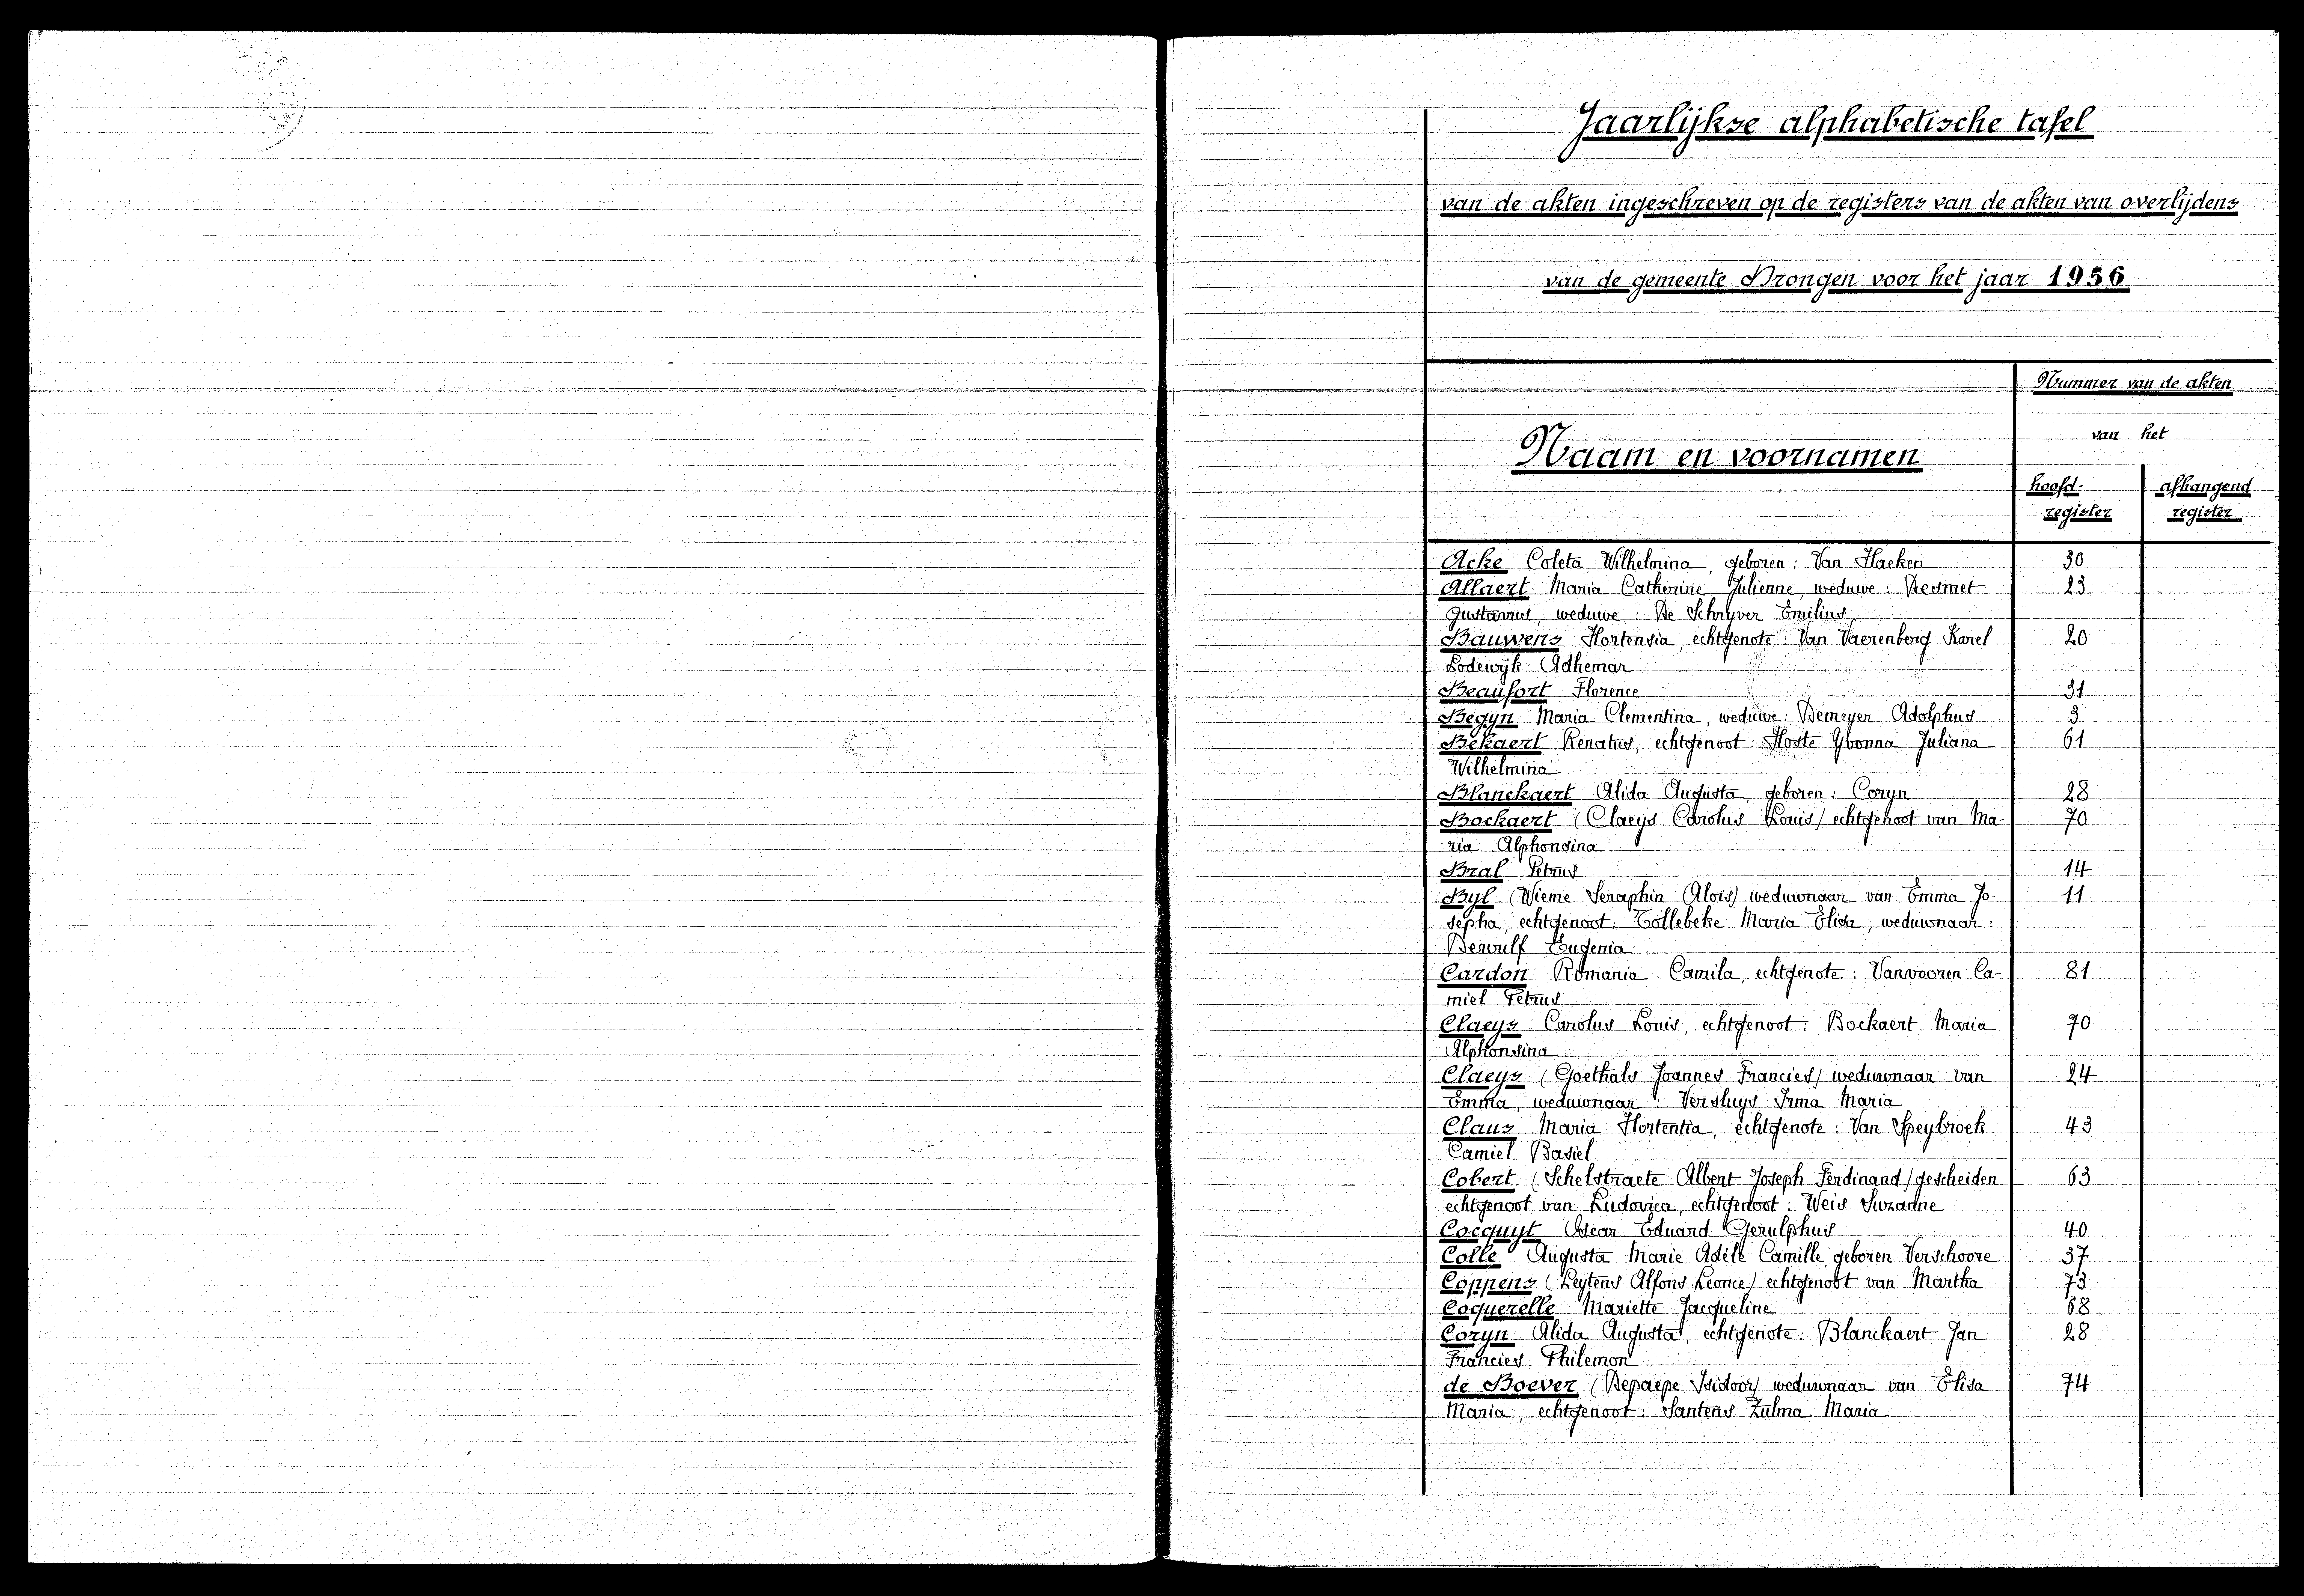 Jaarlijkse alphabetische tafel
van de akten ingeschreven op de registers van de akten van overlijdens
van de gemeente Drongen voor het jaar 1956
Nummer van de akten
van het
Naam en voornamen
hoofd- afhangend
register register
Acke Coleta Wilhelmina, geboren: Van Haeken 30
Allaert Maria Catherine Julienne, weduwe: Desmet 23
Gustavus, weduwe: De Schryver Emilius
Bauwens Hortensia, echtgenote: Van Vaerenberg Karel 20
Lodewijk Adhemar
Beaufort Florence 31
Begyn Maria Clementina, weduwe: Demeyer Adolphus 3
Bekaert Renatus, echtgenoot: Hoste Yvonna Juliana 61
Wilhelmina
Blanckaert Alida Augusta, geboren: Coryn 28
Bockaert (Claeys Carolus Louis) echtgenoot van Ma- 70
ria Alphonsina
Bral Petrus 14
Byl (Wieme Seraphin Aloïs) weduwnaar van Emma Jo- 11
sepha, echtgenoot: Tollebeke Maria Elisa, weduwnaar:
Dewulf Eugenia
Cardon Romania Camila, echtgenote: Vanvooren Ca- 81
miel Petrus
Claeys Carolus Louis, echtgenoot: Bockaert Maria 70
Alphonsina
Claeys (Goethals Joannes Francies) weduwnaar van 24
Emma, weduwnaar: Versluys Irma Maria
Claus Maria Hortentia, echtgenote: Van Speybroek 43
Camiel Basiel
Cobert (Schelstraete Albert Joseph Ferdinand) gescheiden 63
echtgenoot van Ludovica, echtgenoot: Weis Suzanne
Cocquyt Oscar Eduard Gerulphus 40
Colle Augusta Marie Adèle Camille, geboren Verschoore 37
Coppens (Leytens Alfons Leonce) echtgenoot van Martha 73
Coquerelle Mariette Jacqueline 68
Coryn Alida Augusta, echtgenote: Blanckaert Jan 28
Francies Philemon
de Boever (Depaepe Isidoor) weduwnaar van Elisa 74
Maria, echtgenoot: Santens Zulma Maria